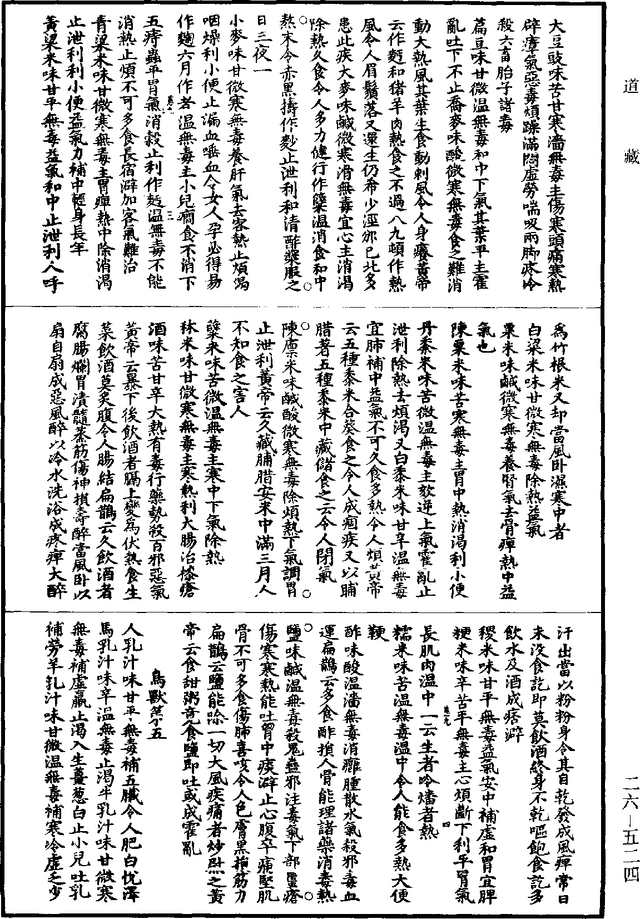 道藏
大豆豉味苦甘寒濇無毒主傷寒頭痛寒熱
辟瘴氣惡毒煩躁滿悶虛勞喘吸兩脚疼冷
殺六畜胎子諸毒
藊豆味甘微溫無毒和中下氣其葉平主霍
亂吐下不止喬麥味酸微寒無毒食之難消
動大熱風其葉生食動刺風令人身癢黃帝
云作麪和猪羊肉熱食之不過八九頓作熱
風令人眉鬚落又還生仍希少涇邠已北多
患此疾大麥味鹹微寒滑無毒宜心主消渴
除熱久食令人多力健行作糵溫消食和中
熬末令赤黑擣作麨止泄利和清醋漿服之
日三夜一
小麥味甘微寒無毒養肝氣去客熱止煩渴
咽燥利小便止漏血唾血令女人孕必得易
作麴六月作者溫無毒主小兒癇食不消下
五痔蟲平胃氣消穀止利作麪溫無毒不能
消熱止煩不可多食長宿澼加客氣難治
青粱米味甘微寒無毒主胃痺熱中除消渴
止泄利利小便益氣力補中輕身長年
黃粱米味甘平無毒益氣和中止泄利人呼
為竹根米又却當風臥濕寒中者
白粱米味甘微寒無毒除熱益氣
粟米味鹹微寒無毒養腎氣去骨痺熱中益
氣也
陳粟米味苦寒無毒主胃中熱消渴利小便
丹黍米味苦微溫無毒主欬逆上氣霍亂止
泄利除熱去煩渴又白黍米味甘辛溫無毒
宜肺補中益氣不可久食多熱令人煩黃帝
云五種黍米合葵食之令人成痼疾又以脯
腊著五種黍米中藏儲食之云令人閉氣
陳廩米味鹹酸微寒無毒除煩熱下氣調胃
止泄利黃帝云久藏脯腊安米中滿三月人
不知食之害人
糵米味苦微溫無毒主寒中下氣除熱
秫米味甘微寒無毒主寒熱利大腸治㯃瘡
酒味苦甘辛大熱有毒行藥勢殺百邪惡氣
黃帝云暴下後飲酒者膈上變為伏熱食生
菜飲酒莫炙腹令人腸結扁鵲云久飲酒者
腐腸爛胃漬髓蒸筋傷神損壽醉當風臥以
扇自扇成惡風醉以冷水洗浴成疼痺大醉
汗出當以粉粉身令其自乾發成風痺常日
未沒食訖即莫飲酒終身不乾嘔飽食訖多
飲水及酒成痞澼
稷米味甘平無毒益氣安中補虛和胃宜脾
粳米味辛苦平無毒主心煩斷下利平胃氣
長肌肉溫中一云生者冷燔者熱
糯米味苦溫無毒溫中令人能食多熱大便
鞕
酢味酸溫濇無毒消癰腫散水氣殺邪毒血
運扁鵲云多食酢損人骨能理諸藥消毒熱
鹽味鹹溫無毒殺鬼蠱邪注毒氣下部䘌瘡
傷寒寒熱能吐胃中痰澼止心腹卒痛堅肌
骨不可多食傷肺喜咳令人色膚黑損筋力
扁鵲云鹽能除一切大風疾痛者炒熨之黃
帝云食甜粥竟食鹽即吐或成霍亂
鳥獸第五
人乳汁味甘平無毒補五臟令人肥白悅澤
馬乳汁味辛溫無毒止渴牛乳汁味甘微寒
無毒補虛羸止渴入生薑葱白止小兒吐乳
補勞羊乳汁味甘微溫無毒補寒冷虛乏少
二六—五二四